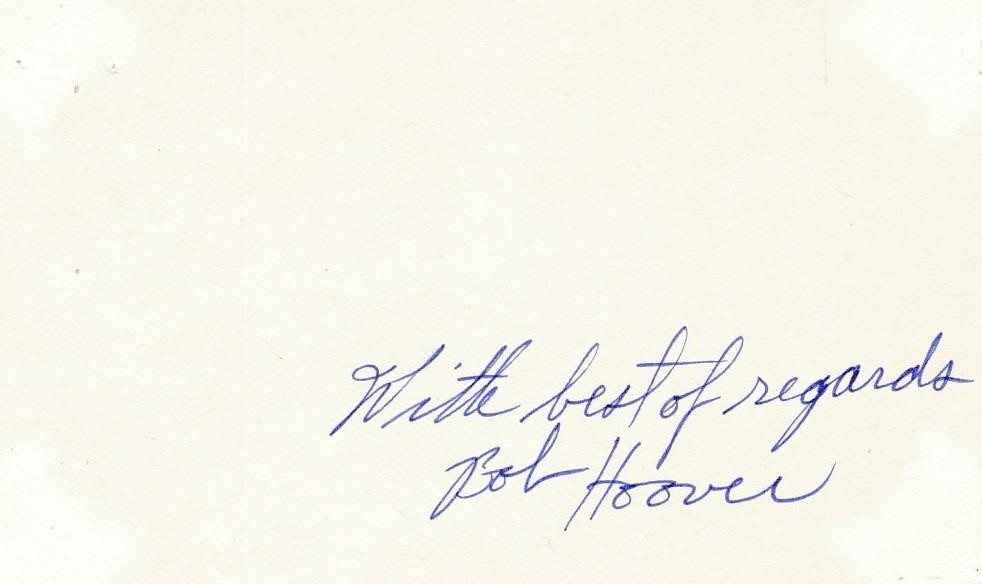 With best of regards
Bob Hoover